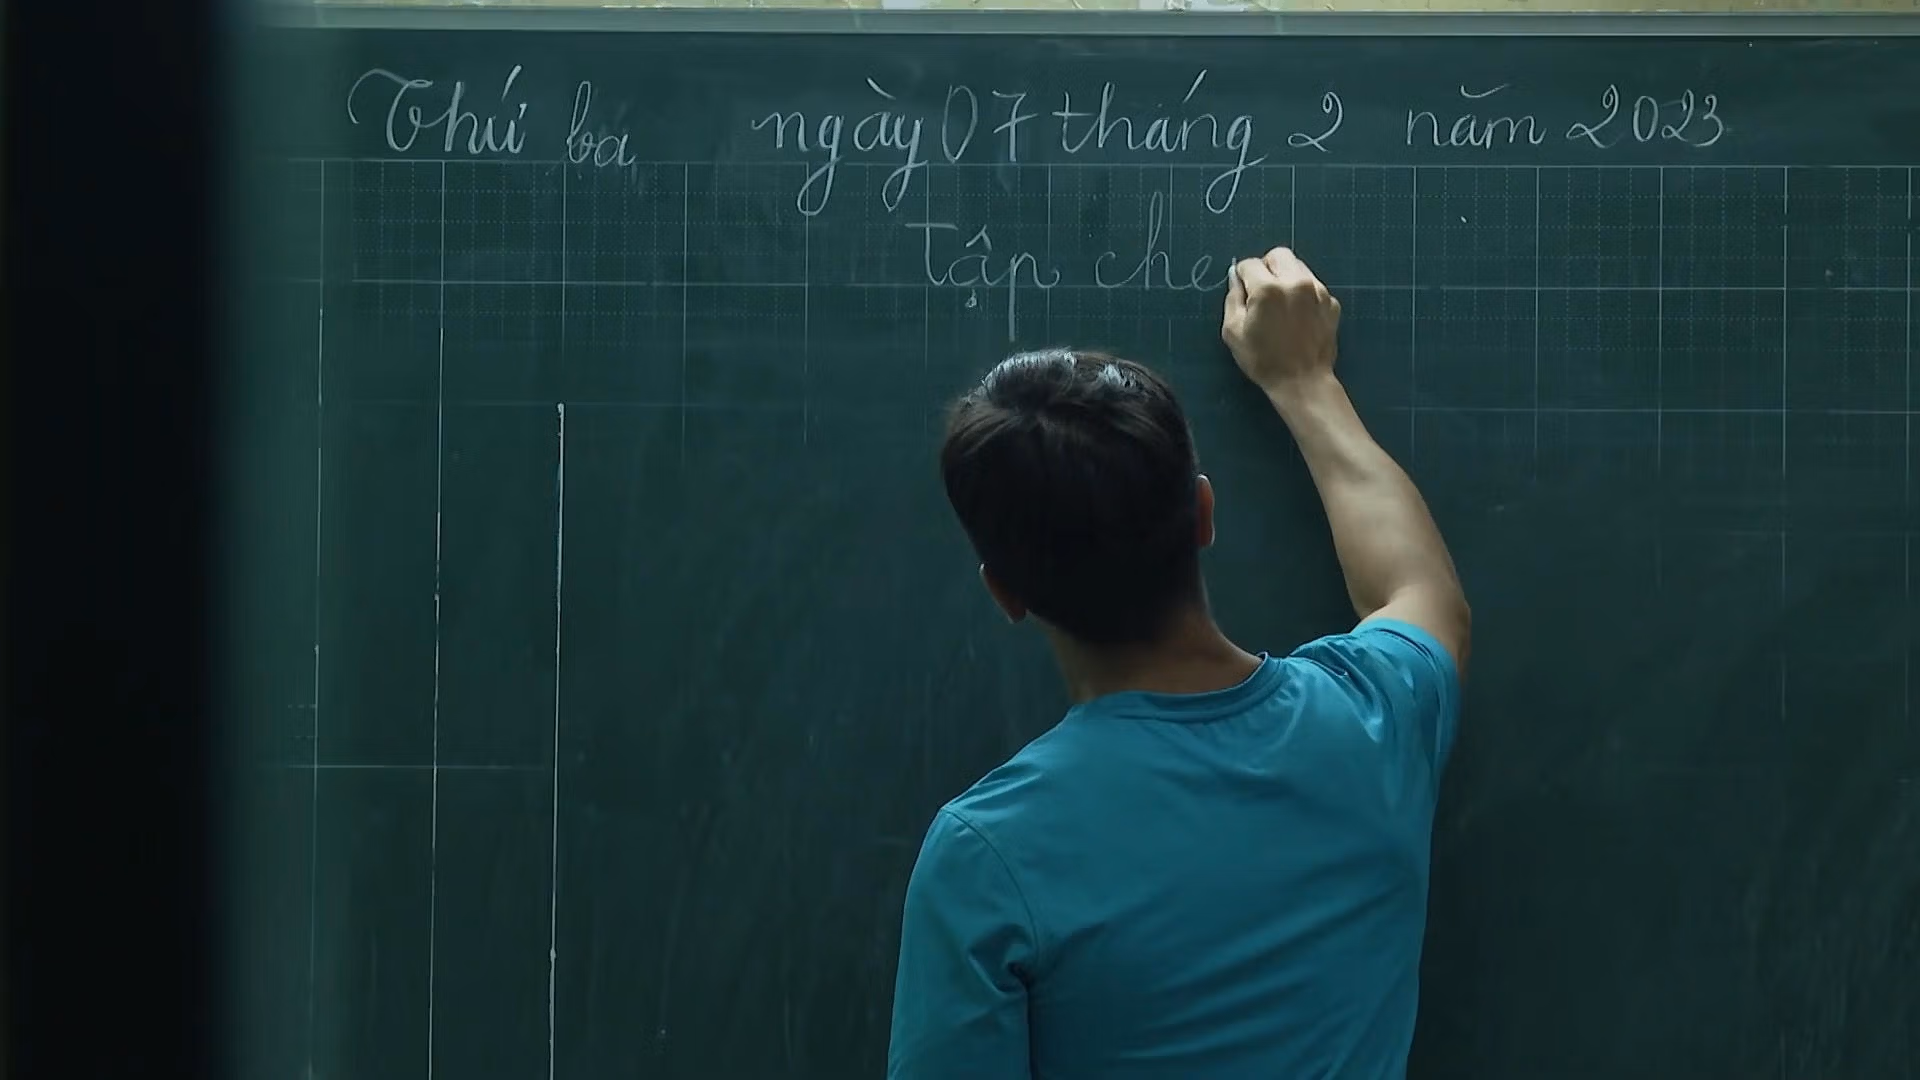 Thứ ba ngày 07 tháng 2 năm 2023
tập che